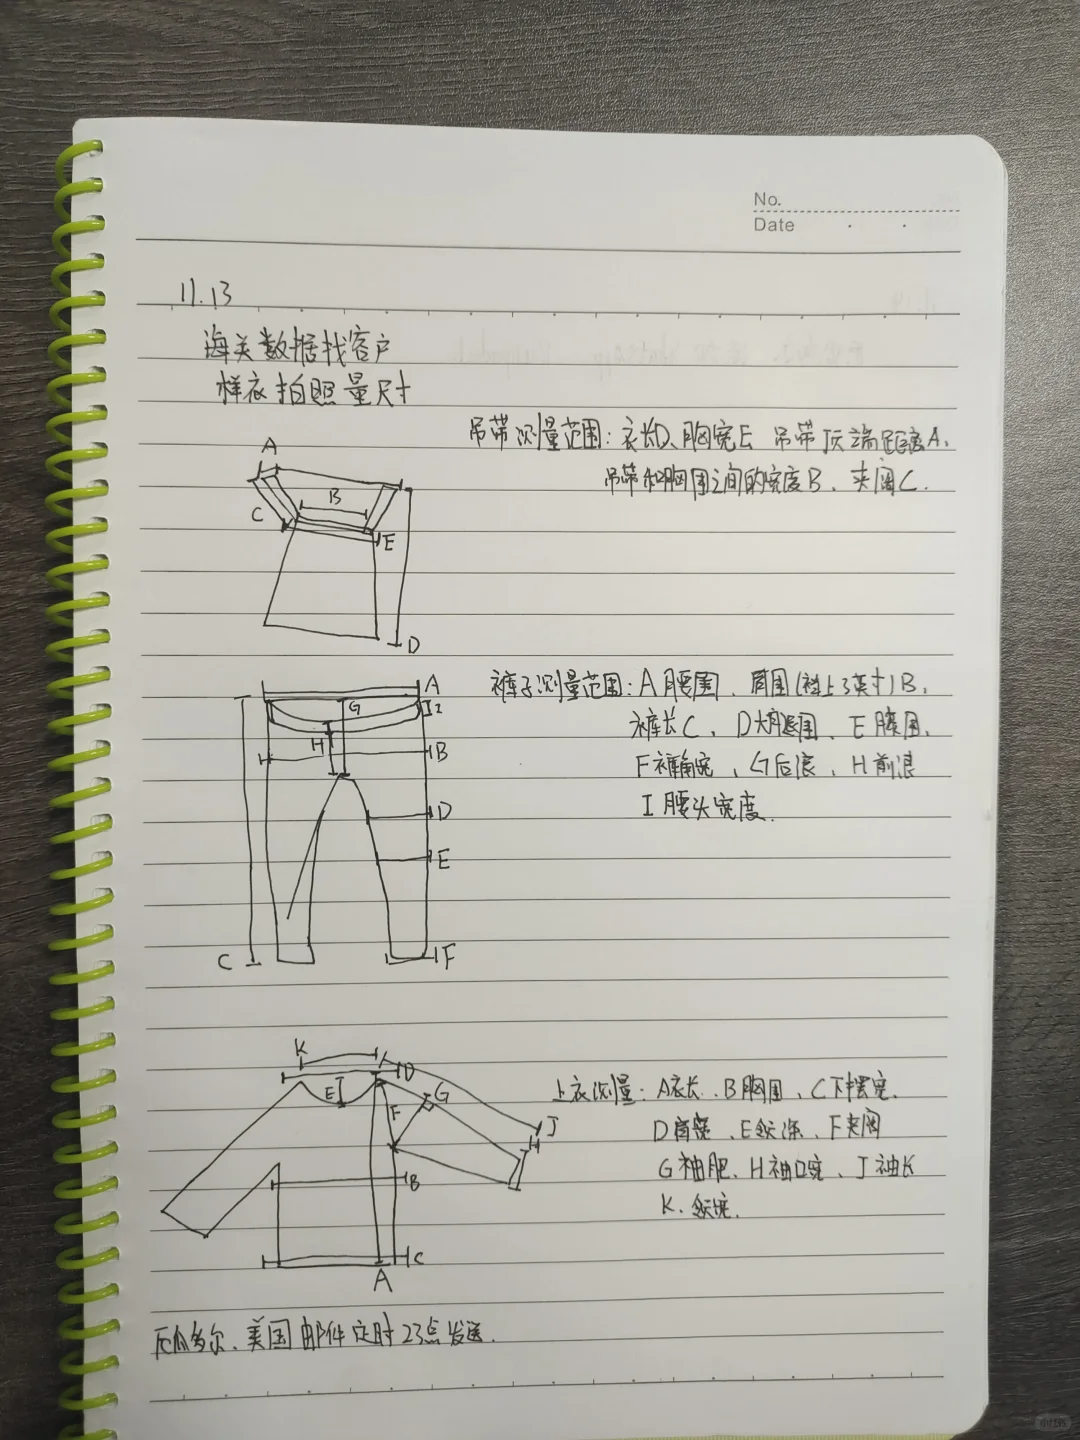 No.
Date
11.13
海关数据找客户
样衣拍照量尺寸
吊带测量范围:衣长D、胸宽E 吊带顶端距离A、
吊带和胸围之间的宽度B、夹圈C.
A
B
C
E
D
裤子测量范围:A腰围、臀围(裆上3英寸)B、
裤长C、D大腿围、E膝围、
F裤脚宽、G后浪、H前浪
I腰头宽度.
A
G
I
H
B
D
E
C
F
上衣测量:A衣长、B胸围、C下摆宽、
D肩宽、E领深、F夹圈
G袖肥、H袖口宽、J袖长
K、领宽.
K
D
E
G
F
J
H
B
C
A
厄瓜多尔、美国邮件定时23点发送.